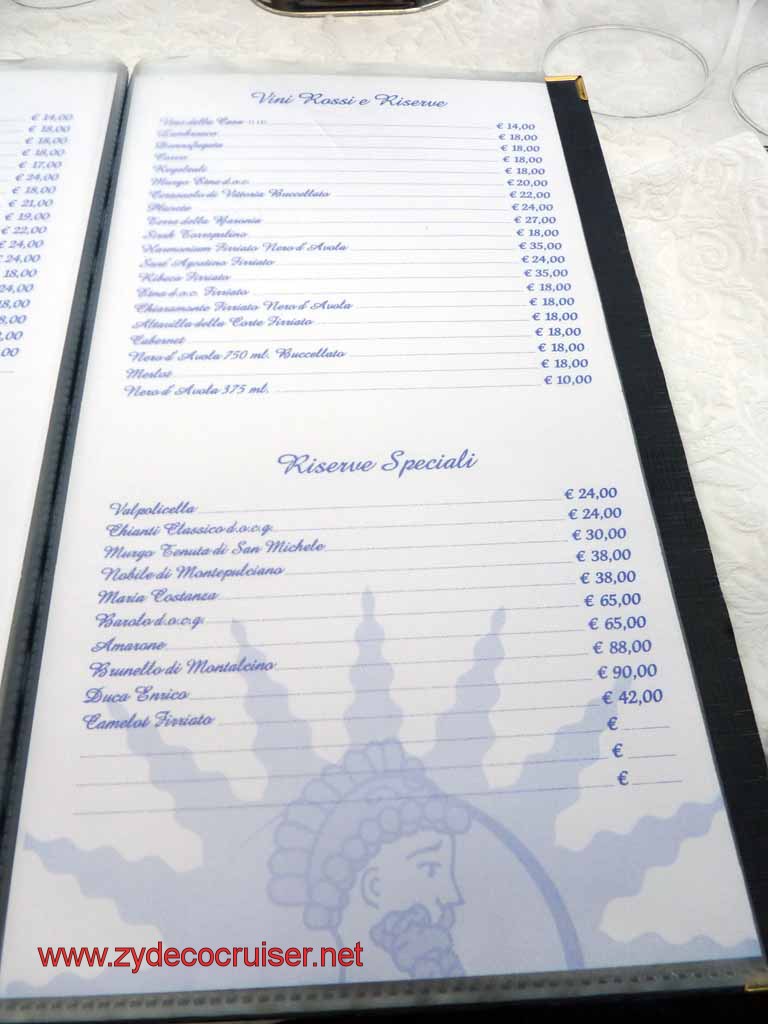 € 14,00
€ 18,00
€ 18,00
€ 18,00
€ 17,00
€ 24,00
€ 18,00
€ 21,00
€ 19,00
€ 22,00
€ 24,00
€ 24,00
18,00
24,00
18,00
8,00
,00
00
Vini Rossi e Riserve
Vino della Casa € 14,00
Lambrusco € 18,00
Donnafugata € 18,00
Corvo € 18,00
Regaleali € 18,00
Murgo Etna d.o.c. € 20,00
Cerasuolo di Vittoria Buccellato € 22,00
Planeta € 24,00
Terre della Baronia € 27,00
Sirah Torrepalino € 18,00
Harmonium Firriato Nero d'Avola € 35,00
Sant'Agostino Firriato € 24,00
Ribeca Firriato € 35,00
Etna d.o.c. Firriato € 18,00
Chiaramonte Firriato Nero d'Avola € 18,00
Altavilla della Corte Firriato € 18,00
Cabernet € 18,00
Nero d'Avola 750 ml. Buccellato € 18,00
Merlot € 18,00
Nero d'Avola 375 ml. € 10,00
Riserve Speciali
Valpolicella € 24,00
Chianti Classico d.o.c.g. € 24,00
Murgo Tenuta di San Michele € 30,00
Nobile di Montepulciano € 38,00
Maria Costanza € 38,00
Barolo d.o.c.g. € 65,00
Amarone € 65,00
Brunello di Montalcino € 88,00
Duca Enrico € 90,00
Camelot Firriato € 42,00
€
€
€
www.zydecocruiser.net